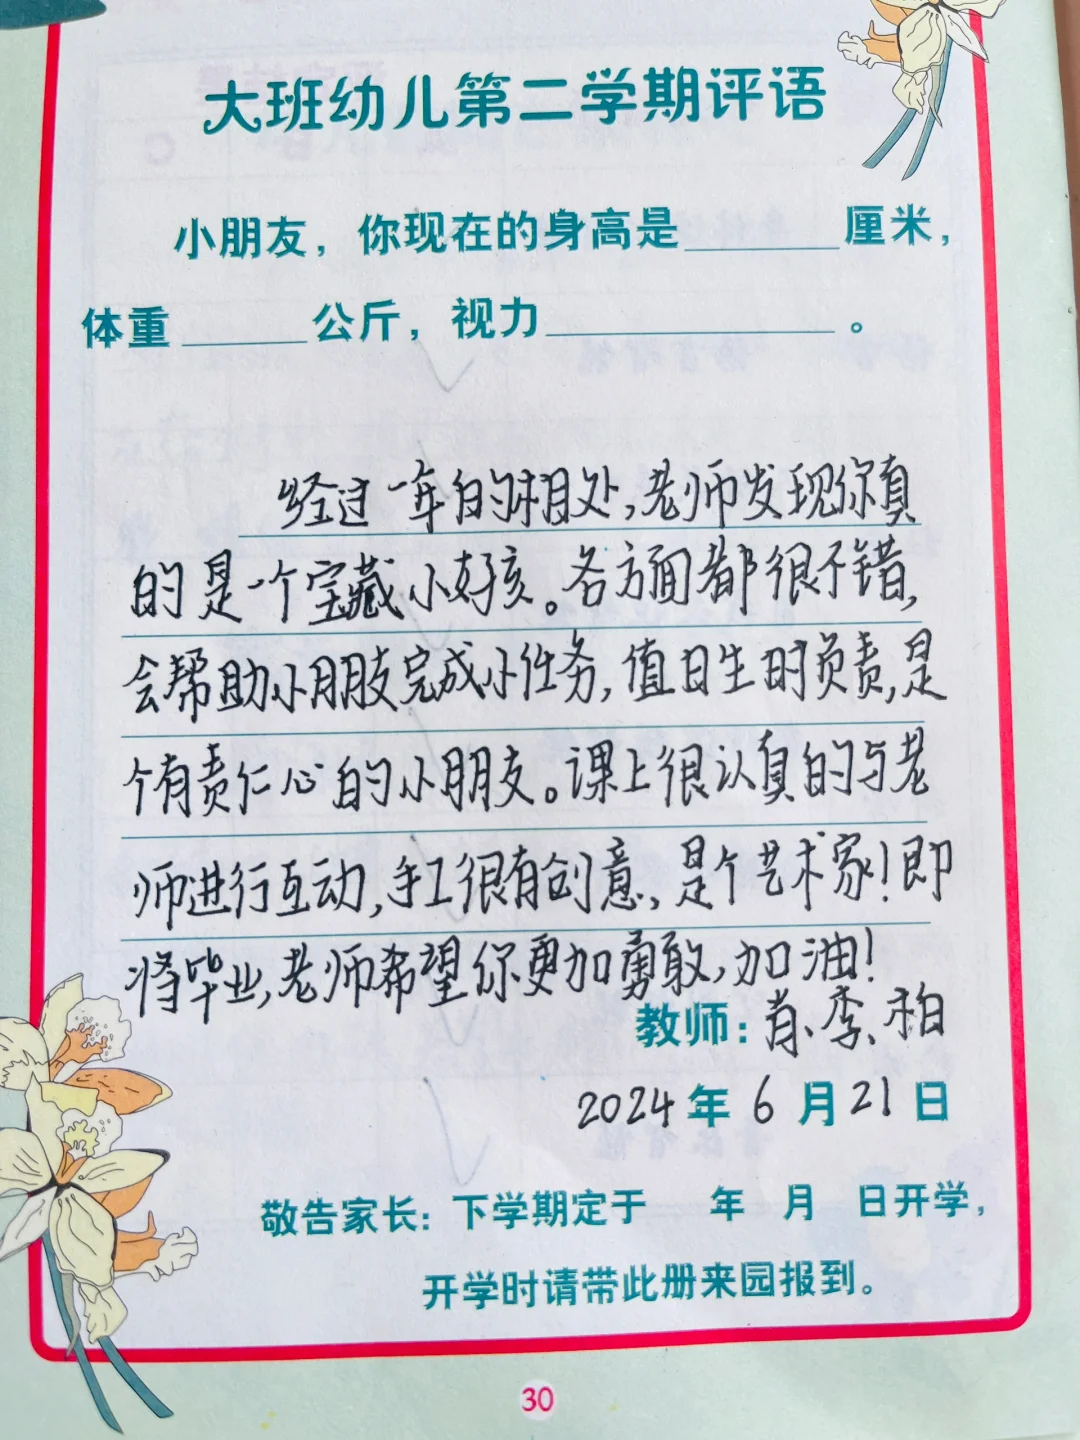 大班幼儿第二学期评语
小朋友，你现在的身高是______厘米，
体重______公斤，视力____________。
经过一年的相处，老师发现你真
的是一个宝藏小好孩。各方面都很不错，
会帮助小朋友完成小任务，值日生时负责，是
个有责任心的小朋友。课上很认真的与老
师进行互动，手工很有创意，是个艺术家！即
将毕业，老师希望你更加勇敢，加油！
教师：肖、李、柏
2024年6月21日
敬告家长：下学期定于 年 月 日开学，
开学时请带此册来园报到。
30